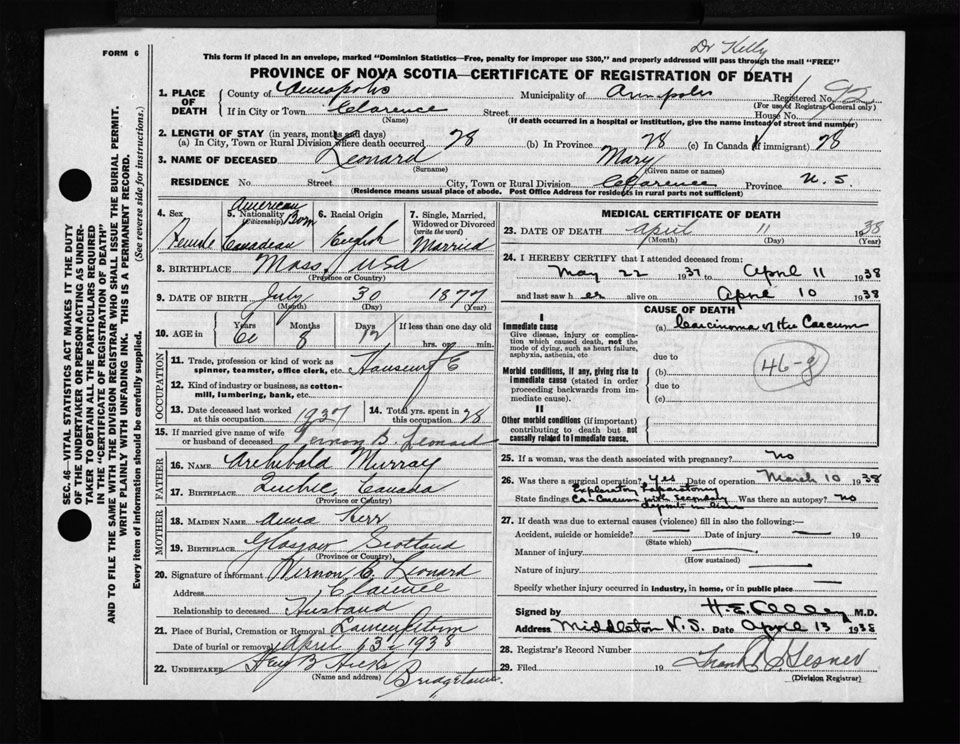 FORM 6
Dr Kelly
This form if placed in an envelope, marked "Dominion Statistics—Free, penalty for improper use $300," and properly addressed will pass through the mail "FREE"
PROVINCE OF NOVA SCOTIA—CERTIFICATE OF REGISTRATION OF DEATH
1. PLACE OF DEATH
County of Annapolis Municipality of Annapolis Registered No.
(For use of Registrar General only)
If in City or Town Clarence Street House No.
(Name) (If death occurred in a hospital or institution, give the name instead of street and number)
2. LENGTH OF STAY (in years, months and days)
(a) In City, Town or Rural Division where death occurred 28 (b) In Province 28 (c) In Canada (if immigrant) 28
3. NAME OF DECEASED Leonard Mary
(Surname) (Given name or names)
RESIDENCE No. Street City, Town or Rural Division Clarence Province N. S.
(Residence means usual place of abode. Post Office Address for residents in rural parts not sufficient)
4. Sex Female
5. Nationality (Citizenship) American Born Canadian
6. Racial Origin English
7. Single, Married, Widowed or Divorced (write the word) Married
8. BIRTHPLACE Mass, USA
(Province or Country)
9. DATE OF BIRTH July 30 1877
(Month) (Day) (Year)
10. AGE in Years 60 Months 8 Days 12 If less than one day old
hrs. or min.
OCCUPATION
11. Trade, profession or kind of work as spinner, teamster, office clerk, etc.
12. Kind of industry or business, as cotton-mill, lumbering, bank, etc.
13. Date deceased last worked at this occupation 1937
14. Total yrs. spent in this occupation 28
15. If married give name of wife or husband of deceased Vernon B. Leonard
FATHER
16. NAME Archibald Murray
17. BIRTHPLACE Quebec, Canada
(Province or Country)
MOTHER
18. MAIDEN NAME Anna Kerr
19. BIRTHPLACE Glasgow Scotland
(Province or Country)
20. Signature of informant Vernon Leonard
Address Clarence
Relationship to deceased Husband
21. Place of Burial, Cremation or Removal
Date of burial or removal April 13 1938
22. UNDERTAKER B. Hicks
(Name and address) Bridgetown
MEDICAL CERTIFICATE OF DEATH
23. DATE OF DEATH April 11 1938
(Month) (Day) (Year)
24. I HEREBY CERTIFY that I attended deceased from:
May 22 1937 to April 11 1938
and last saw her alive on April 10 1938
CAUSE OF DEATH
I
Immediate cause
Give disease, injury or complication which caused death, not the mode of dying, such as heart failure, asphyxia, asthenia, etc
(a) Carcinoma of the Caecum
due to
Morbid conditions, if any, giving rise to immediate cause (stated in order proceeding backwards from immediate cause).
(b)
due to
(c)
46-g
II
Other morbid conditions (if important) contributing to death but not causally related to immediate cause.
25. If a woman, was the death associated with pregnancy? no
26. Was there a surgical operation? Yes Date of operation March 10 1938
Exploratory Laparotomy
State findings Ca-Caecum with secondary deposits in liver Was there an autopsy? no
27. If death was due to external causes (violence) fill in also the following:—
Accident, suicide or homicide? Date of injury 19
(State which)
Manner of injury
(How sustained)
Nature of injury
Specify whether injury occurred in industry, in home, or in public place
Signed by M.D.
Address Middleton N.S. Date April 13 1938
28. Registrar's Record Number
29. Filed 19
(Division Registrar)
SEC. 46—VITAL STATISTICS ACT MAKES IT THE DUTY
OF THE UNDERTAKER OR PERSON ACTING AS UNDER-
TAKER TO OBTAIN ALL THE PARTICULARS REQUIRED
IN THE "CERTIFICATE OF REGISTRATION OF DEATH"
AND TO FILE THE SAME WITH THE DIVISION REGISTRAR WHO SHALL ISSUE THE BURIAL PERMIT.
WRITE PLAINLY WITH UNFADING INK. THIS IS A PERMANENT RECORD.
Every item of information should be carefully supplied. (See reverse side for instructions.)